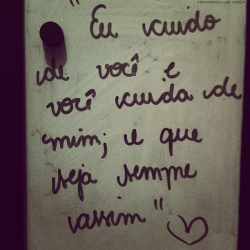 "Eu cuido
de você e
você cuida de
mim; e que
seja sempre
assim"